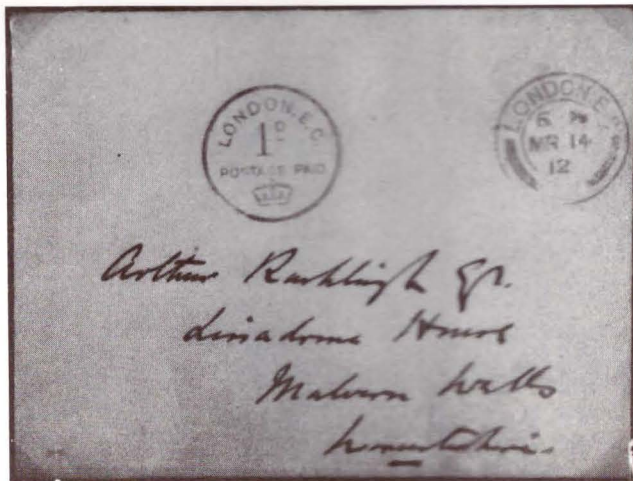 LONDON. E.C.
1D
POSTAGE PAID
LONDON. E.
6 PM
MR 14
12
Arthur Rashleigh Esq.
House
Malvern Wells
Worcestershire